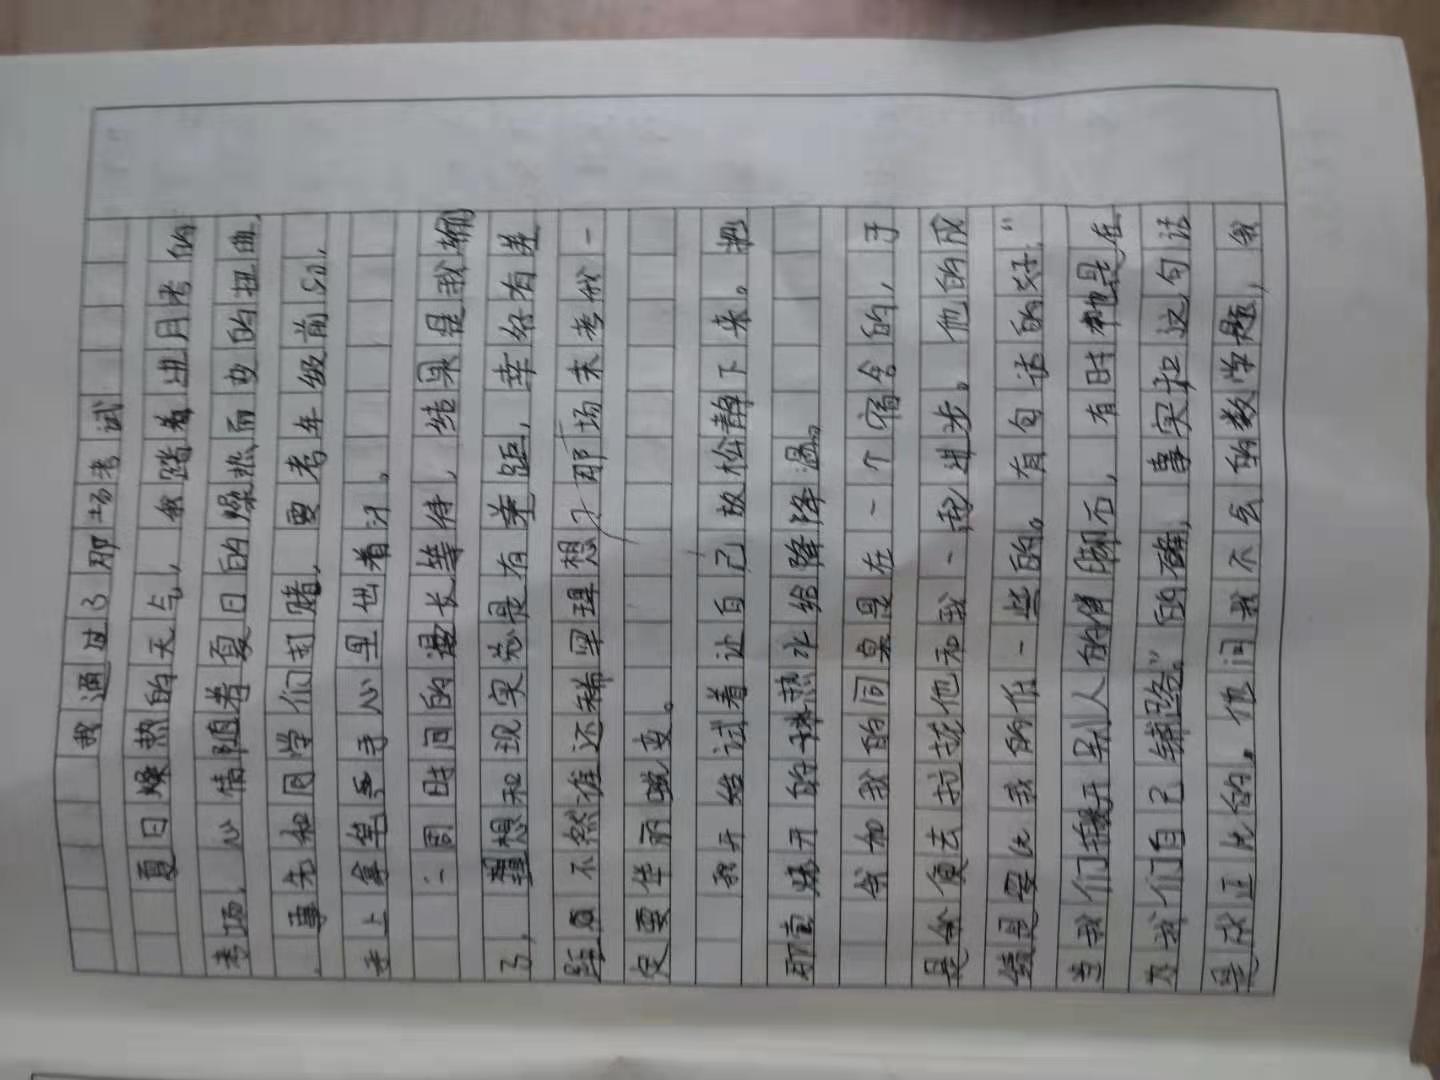 我通过了那场考试
夏日燥热的天气，我踏着进月考的
考场，心情随着夏日的燥热而变的扭曲，
事先和同学们打赌，要考年级前50，
手上拿笔手心里出着汗。
一周时间的漫长等待，结果是我输
了，理想和现实总是有差距，幸好有差
距，不然谁还稀罕理想？那场末考我一
定要华丽蜕变。
我开始试着让自己放松静下来。把
那壶烧开的热水给降降温。
我和我的同桌是在一个宿舍的，于
是我便去拉拢他和我一起进步。他的成
绩是要比我的低一些的。有句话的好："
当我们搬开别人的绊脚石，有时也是在
为我们自己铺路。"的确，事实和这句话
是成正比的。他问我不会的数学题，我